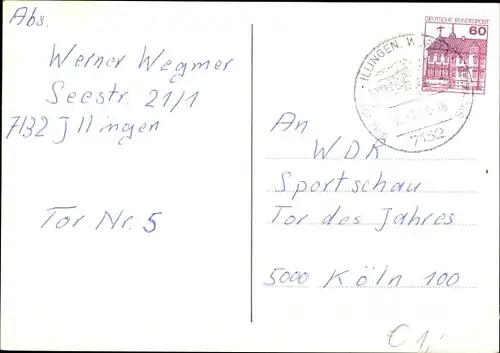 Abs.
Werner Wegmer
Seestr. 21/1
7132 Illingen
Tor Nr. 5
DEUTSCHE BUNDESPOST
60
ILLINGEN
7132
An
WDR
Sportschau
Tor des Jahres
5000 Köln 100
€ 1,-